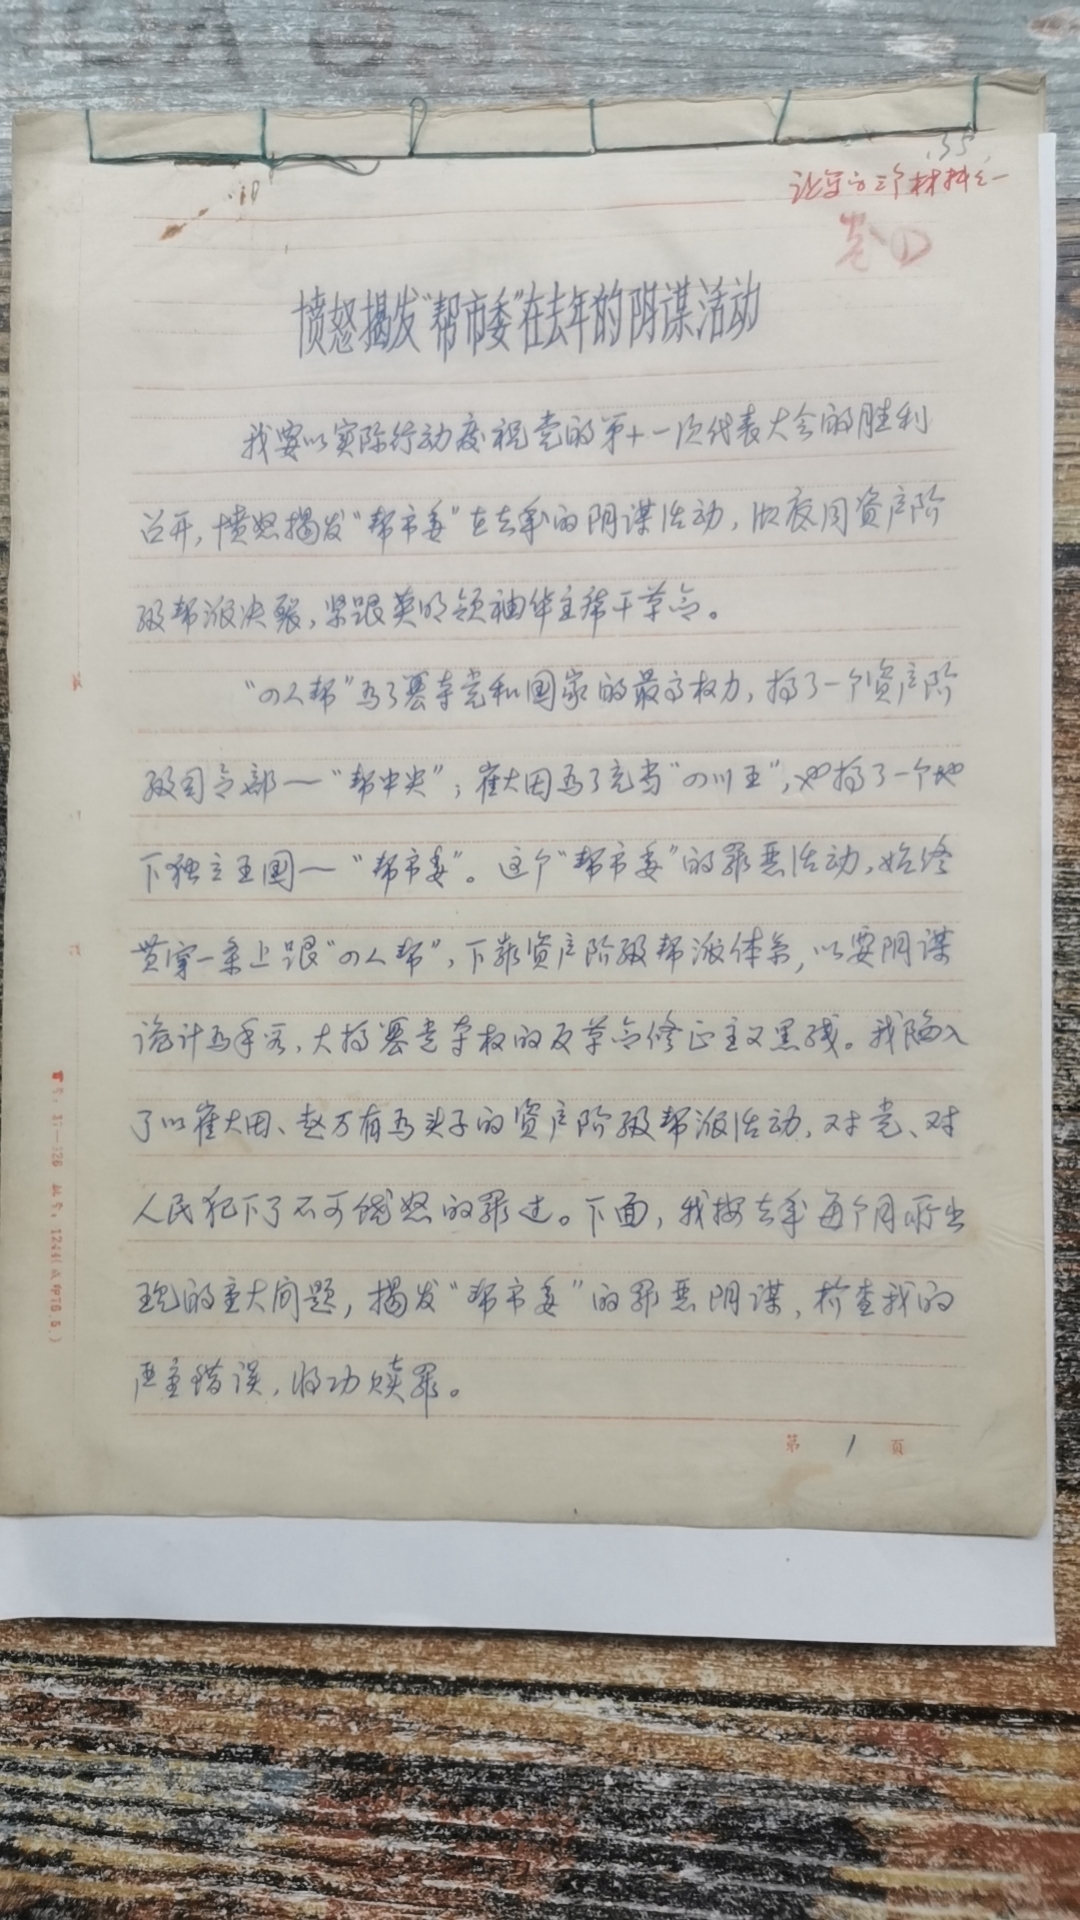 35
材料之一
愤怒揭发“帮市委”在去年的阴谋活动
我要以实际行动庆祝党的第十一次代表大会的胜利
召开，愤怒揭发“帮市委”在去年的阴谋活动，彻底同资产阶
级帮派决裂，紧跟英明领袖华主席干革命。
“四人帮”为了篡夺党和国家的最高权力，搞了一个资产阶
级司令部—“帮中央”；崔大田为了充当“四川王”，也搞了一个地
下独立王国—“帮市委”。这个“帮市委”的罪恶活动，始终
贯穿一条上跟“四人帮”，下靠资产阶级帮派体系，以耍阴谋
诡计为手段，大搞篡党夺权的反革命修正主义黑线。我陷入
了以崔大田、赵万有为头子的资产阶级帮派活动，对党、对
人民犯下了不可饶恕的罪过。下面，我按去年每个月所出
现的重大问题，揭发“帮市委”的罪恶阴谋，检查我的
严重错误，将功赎罪。
第 1 页